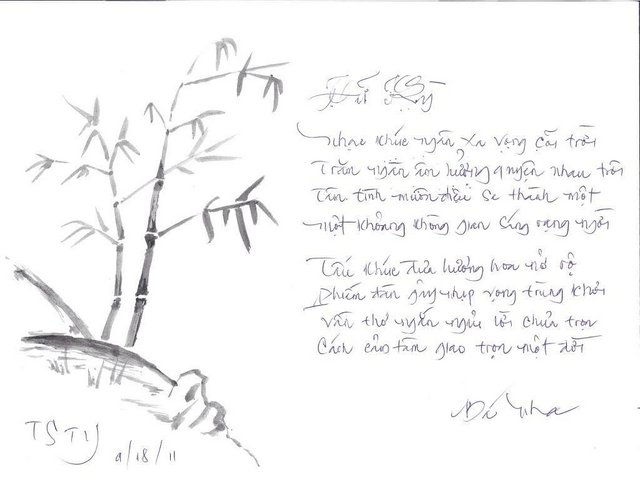 Nhạc khúc ngân xa vọng cõi trời
Trăm ngàn âm hưởng quyện nhau trôi
Tâm tình muôn điệu se thành một
Một khoảng không gian sáng rạng ngời
Tấu khúc đưa hương hoa nở rộ
Phiếm đàn gây nhịp vọng trùng khơi
Vần thơ ngắn ngủi lời chưa trọn
Cách cảm tâm giao trọn một đời
Bá Nha
9/18/11